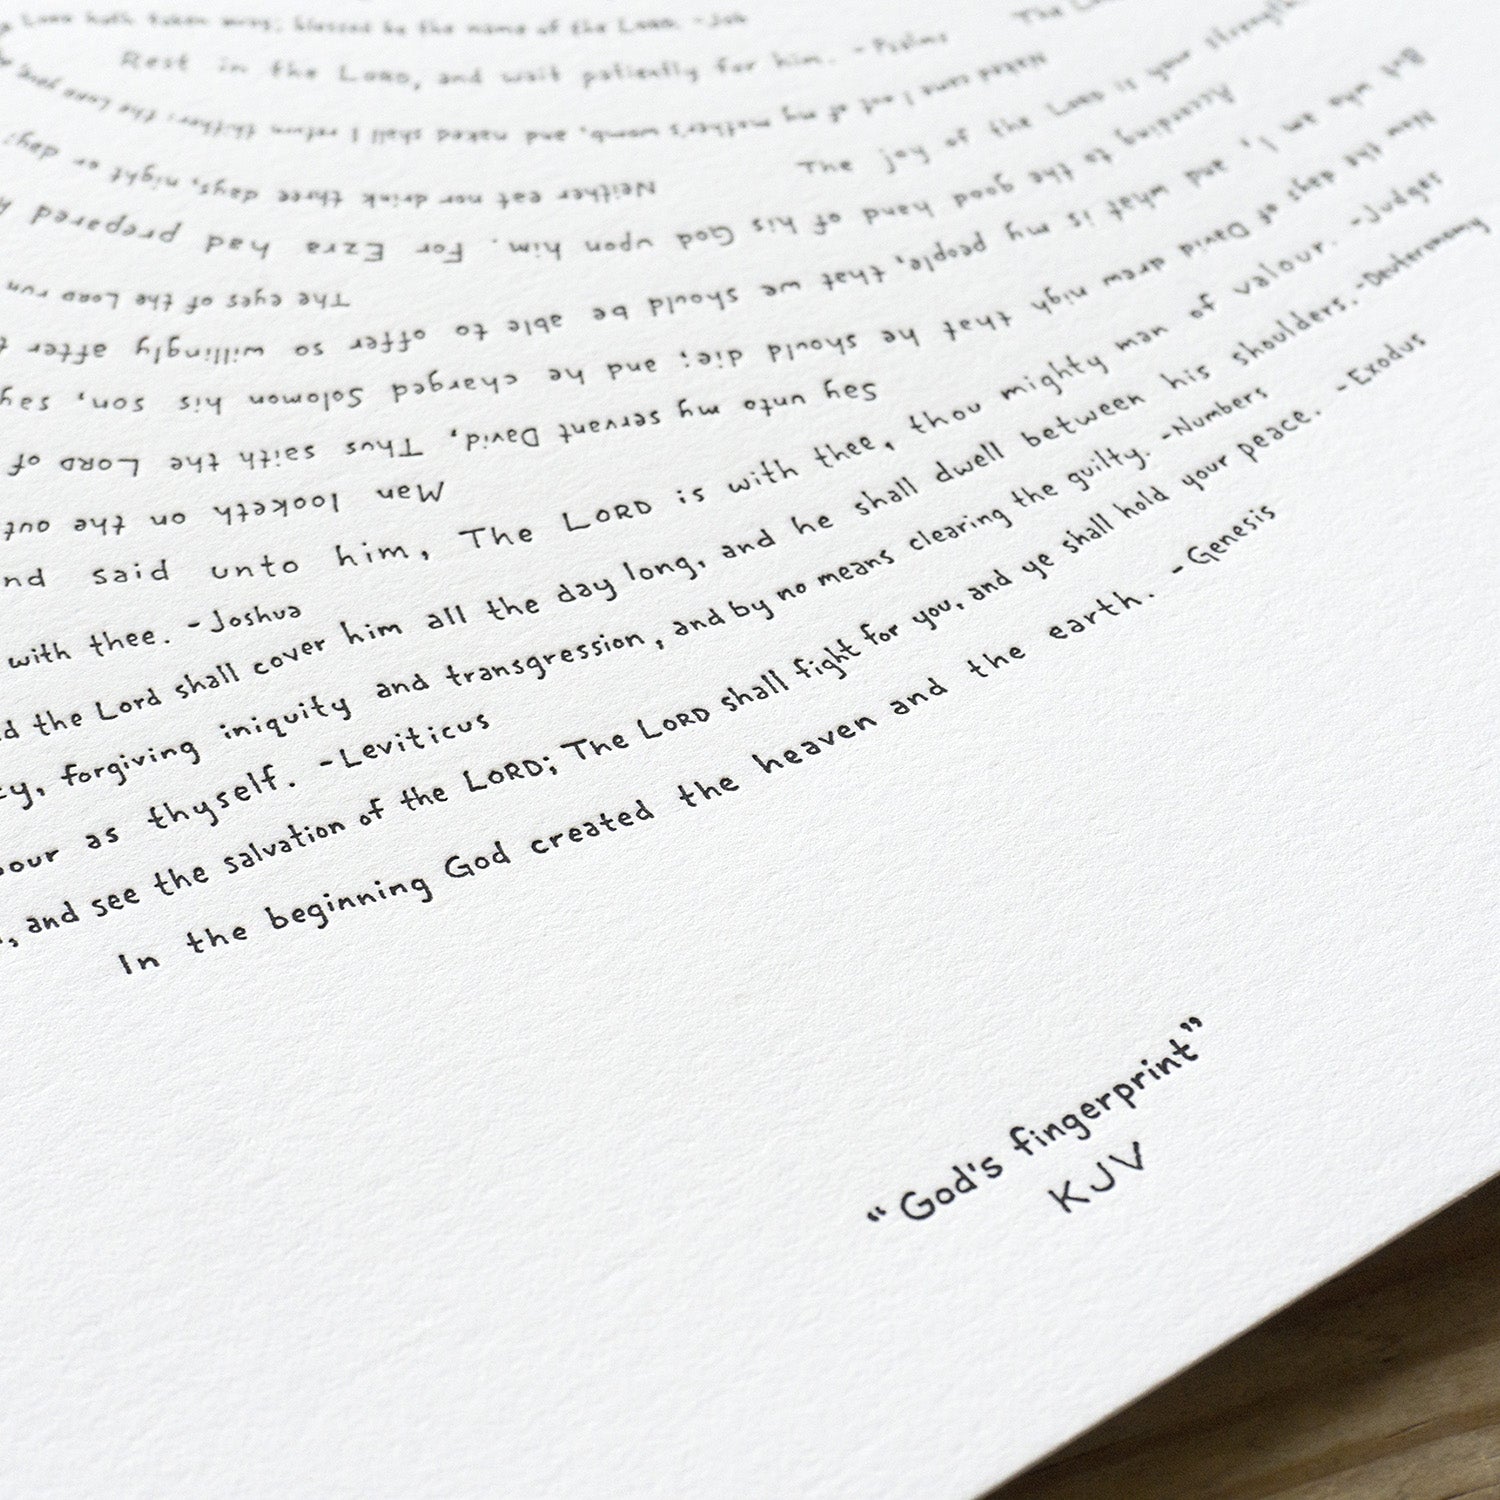 Lord hath taken away; blessed be the name of the Lord. -Job
The
Rest in the Lord, and wait patiently for him. -Psalms
Naked came I out of my mother's womb, and naked shall I return thither: the Lord gave,
The joy of the Lord is your strength
Neither eat nor drink three days, night or day:
According to the good hand of his God upon him. For Ezra had prepared
The eyes of the Lord run
But who am I, and what is my people, that we should be able to offer so willingly after
Now the days of David drew nigh that he should die; and he charged Solomon his son,
Say unto my servant David, Thus saith the Lord of
Man looketh on the out
said unto him, The LORD is with thee, thou mighty man of valour. -Judges
with thee. -Joshua
the Lord shall cover him all the day long, and he shall dwell between his shoulders. -Deuteronomy
forgiving iniquity and transgression, and by no means clearing the guilty. -Numbers
as thyself. -Leviticus
, and see the salvation of the LORD; The LORD shall fight for you, and ye shall hold your peace. -Exodus
In the beginning God created the heaven and the earth. -Genesis
"God's fingerprint"
KJV